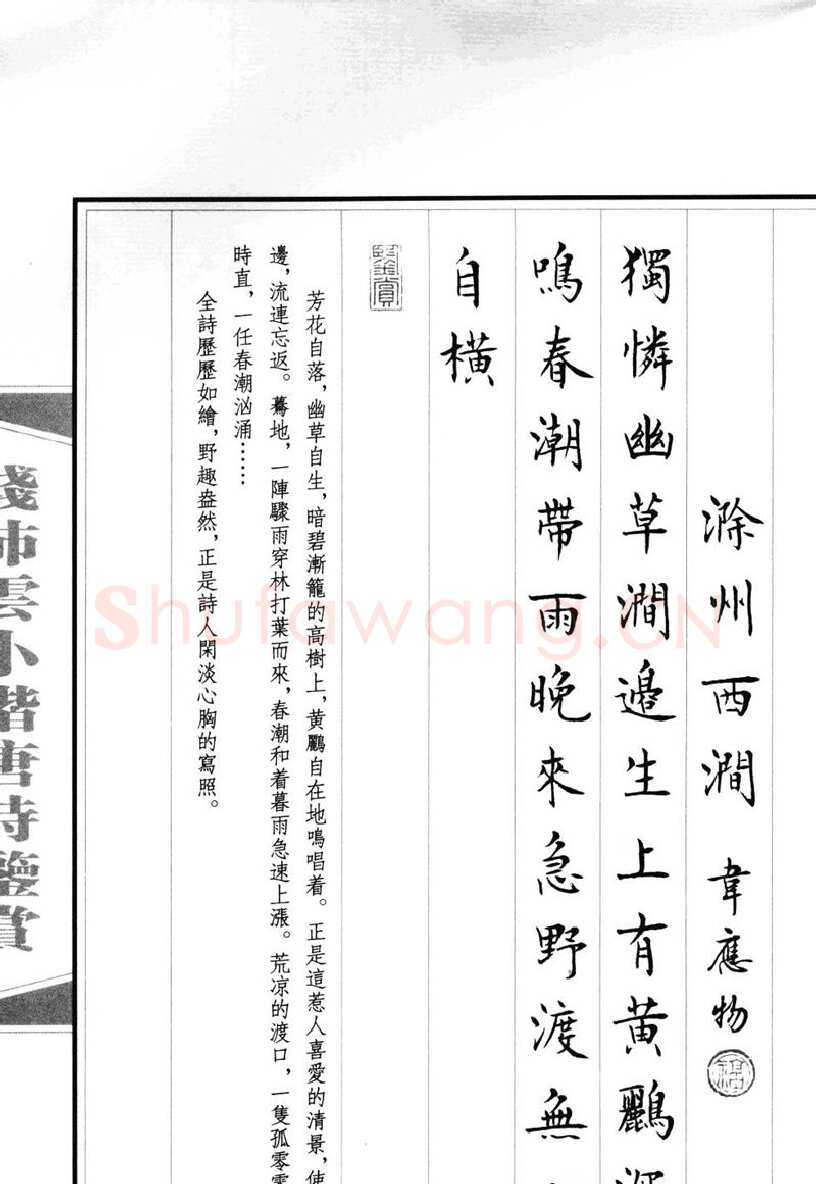 滁州西澗 韋應物
獨憐幽草澗邊生上有黄鸝深
鳴春潮帶雨晚來急野渡無
自橫
鑒賞
芳花自落，幽草自生，暗碧漸籠的高樹上，黄鸝自在地鳴唱着。正是這惹人喜愛的清景，使
邊，流連忘返。驀地，一陣驟雨穿林打葉而來，春潮和着暮雨急速上漲。荒凉的渡口，一隻孤零零
時直，一任春潮汹涌……
全詩歷歷如繪，野趣盎然，正是詩人閑淡心胸的寫照。
錢沛雲小楷唐詩鑒賞
Shufawang.CN